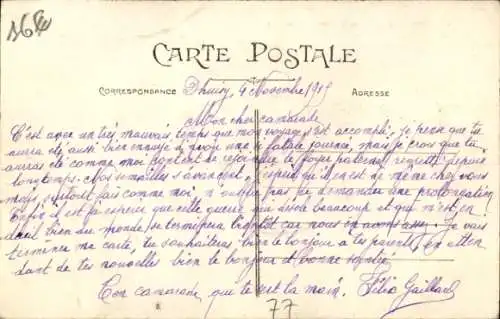 168
CARTE POSTALE
CORRESPONDANCE Thury, 4 Novembre 1915 ADRESSE
Mon cher camarade
C'est avec un très mauvais temps que mon voyage s'est accompli, je pense que tu
aura été aussi bien ennuyé d'avoir une si fatale journée, mais je crois que tu
auras été comme moi content de rejoindre le foyer paternel regretté depuis
longtemps. Nos semailles s'avancent, j'espère qu'il en est de même chez vous
mais, surtout fais comme moi, n'oublie pas de demander une prolongation
Enfin il est à espérer que cette guerre qui désole beaucoup et qui met en
deuil bien du monde se terminera bientôt car nous en avons assez. Je vais
terminer ma carte, tu souhaiteras bien le bonjour à tes parents, en atten
dant de tes nouvelles bien le bonjour et bonne santé
Ton camarade que te est la main. Félix Gaillard
77